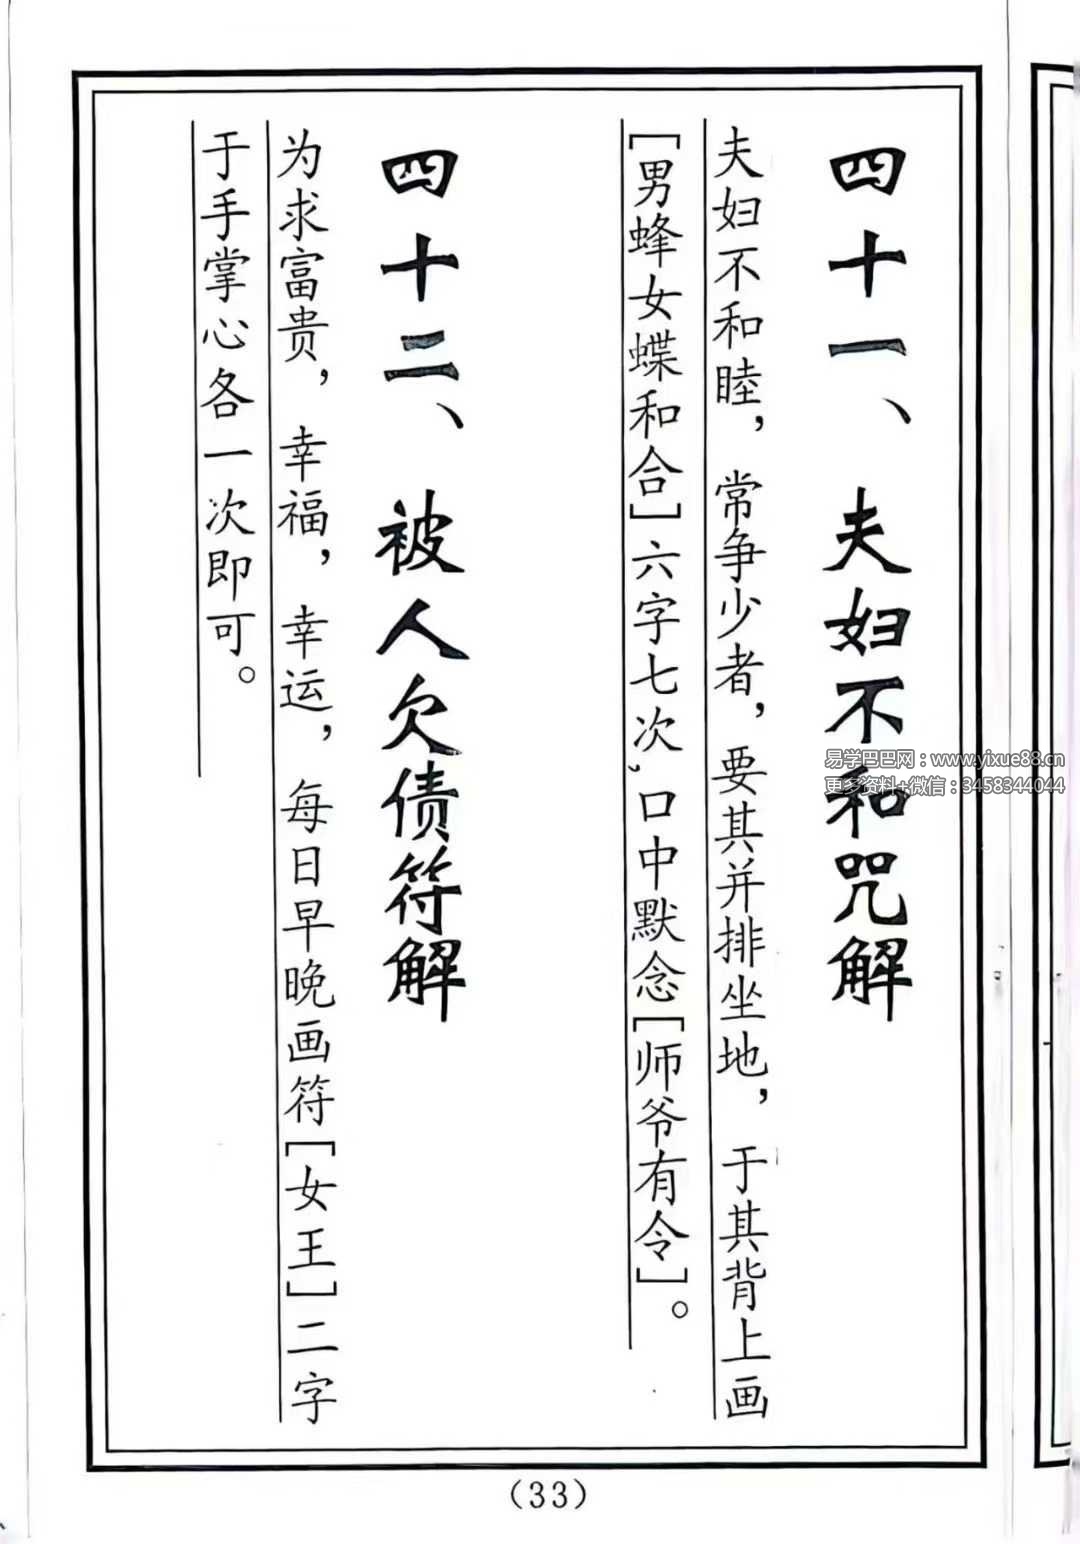 四十一、夫妇不和咒解
夫妇不和睦，常争少者，要其并排坐地，于其背上画
[男蜂女蝶和合]六字七次，口中默念[师爷有令]。
四十二、被人欠债符解
为求富贵，幸福，幸运，每日早晚画符[女王]二字
于手掌心各一次即可。
(33)
易学巴巴网：www.yixue88.cn
更多资料+微信：3458344044